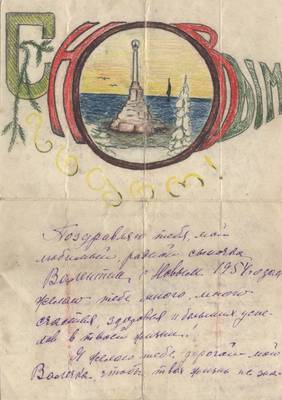 С НОВЫМ
Поздравляю тебя, мой
любимый, родной сыночка
Валентина, с Новым 1954 года
желаю тебе много, много
счастья, здоровья и больших успе-
хов в твоей жизни..
Я желаю тебе, дорогой мой
Валечка, чтобы твоя жизнь не зна-